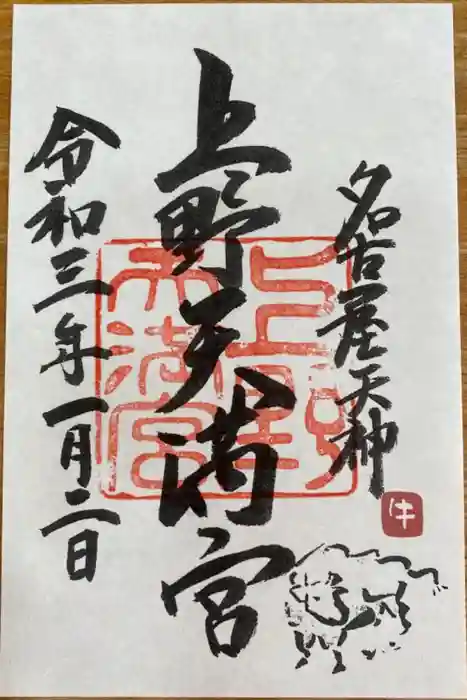 名古屋天神
牛
上野天満宮
上野
天満宮
令和三年一月二日